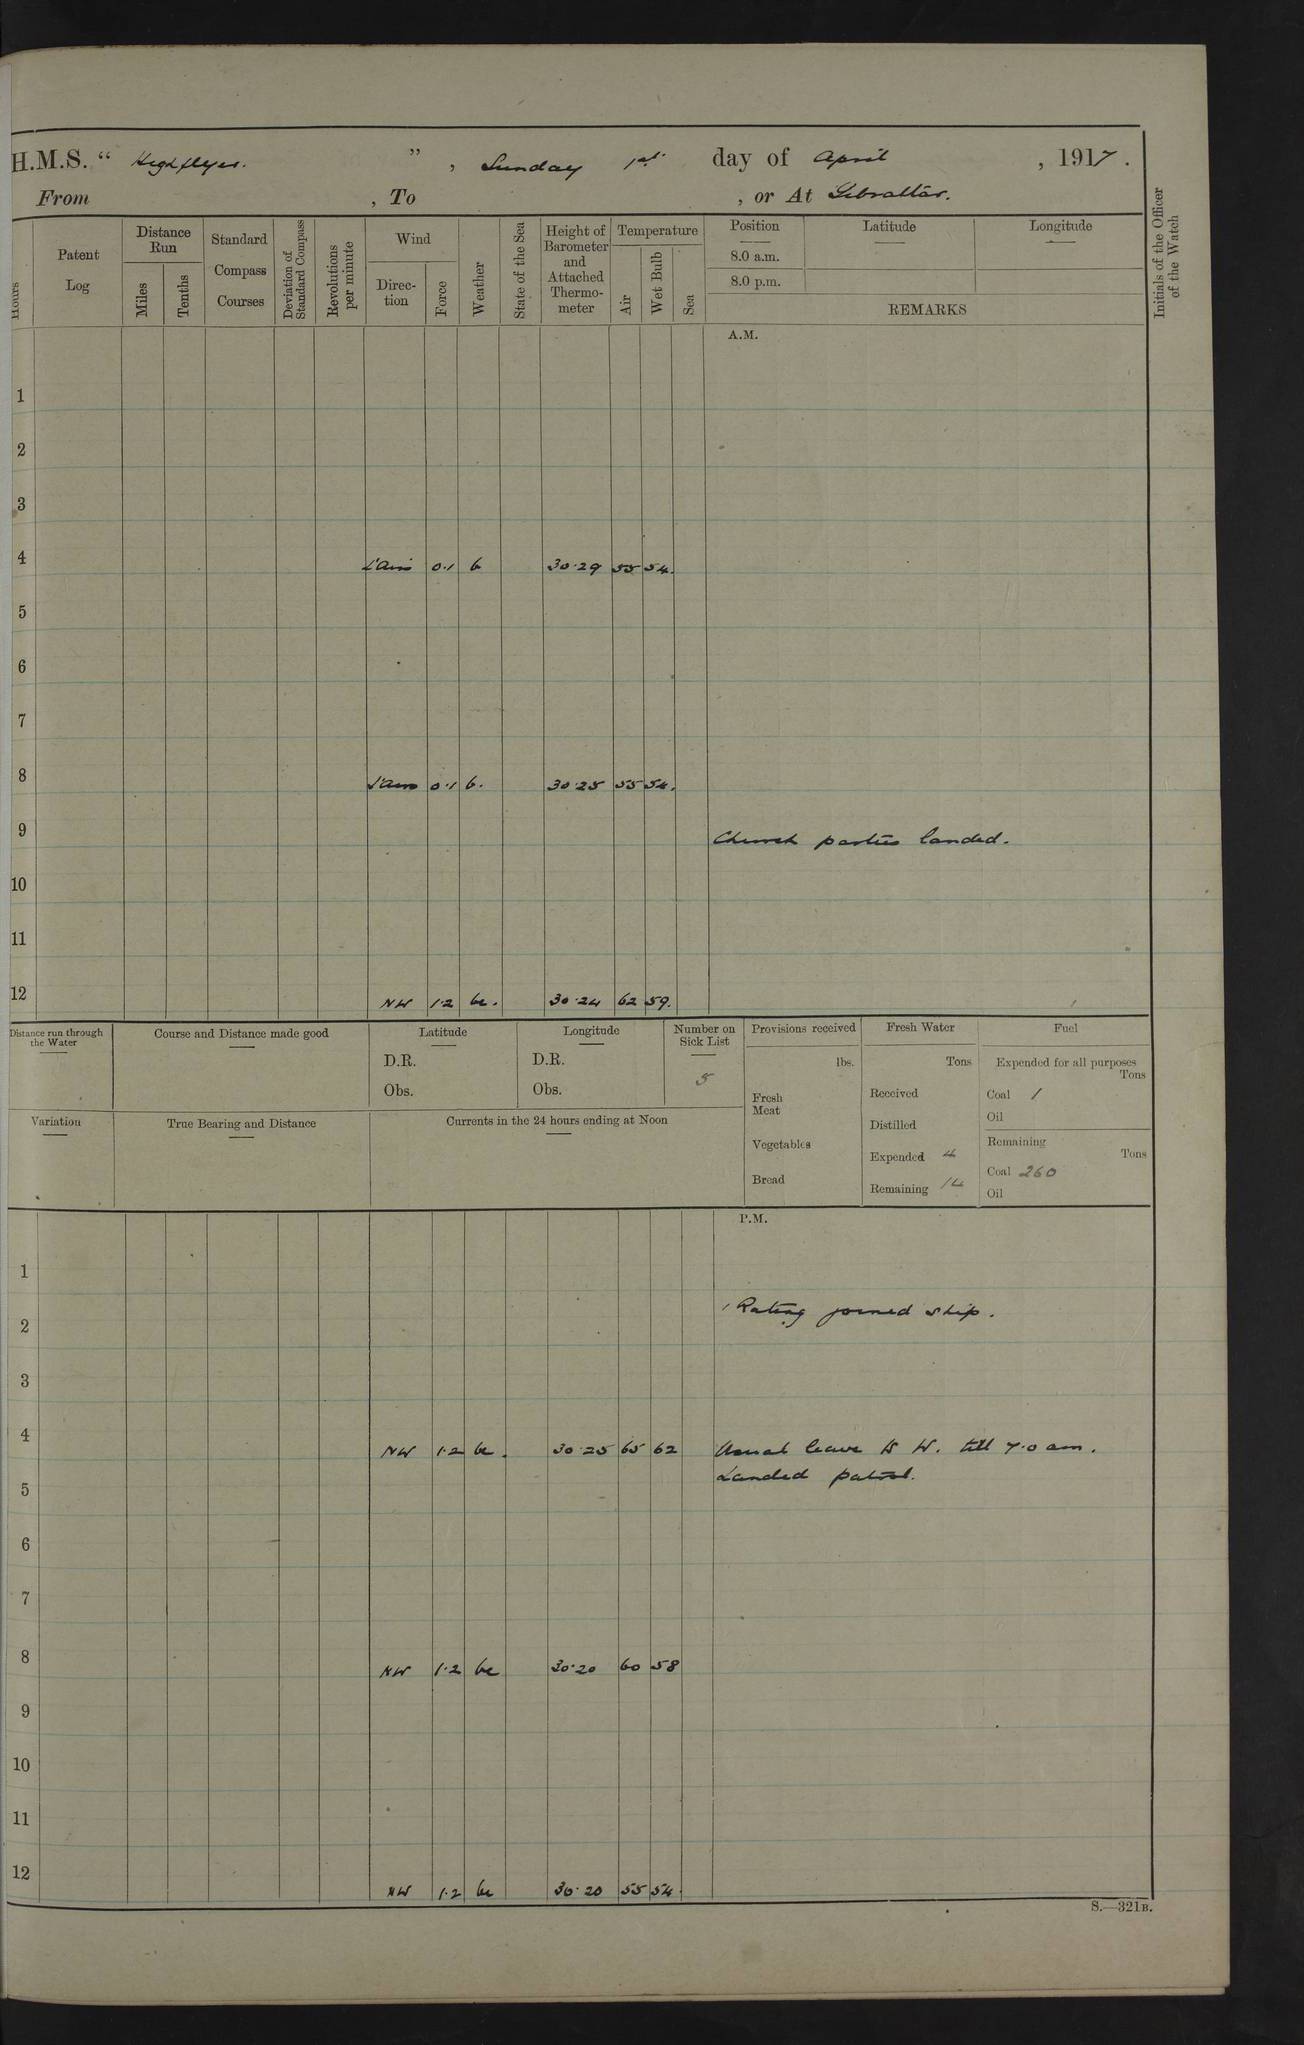 H.M.S. “ Highflyer. ” , Sunday 1st. day of April , 1917.
From , To , or At Gibraltar.
Hours
Patent Log
Distance Run
Miles
Tenths
Standard Compass Courses
Deviation of Standard Compass
Revolutions per minute
Wind
Direc-tion
Force
Weather
State of the Sea
Height of Barometer and Attached Thermo-meter
Temperature
Air
Wet Bulb
Sea
Position Latitude Longitude
8.0 a.m.
8.0 p.m.
REMARKS
Initials of the Officer of the Watch
A.M.
1
2
3
4 L'airs 0.1 b 30.29 55 54.
5
6
7
8 L'airs 0.1 b. 30.25 55 54.
9 Church parties landed.
10
11
12 NW 1.2 bc. 30.24 62 59.
Distance run through the Water
Course and Distance made good
Latitude
D.R.
Obs.
Longitude
D.R.
Obs.
Number on Sick List
5
Provisions received
lbs.
Fresh Meat
Vegetables
Bread
Fresh Water
Tons
Received
Distilled
Expended 4
Remaining 14
Fuel
Expended for all purposes
Tons
Coal 1
Oil
Remaining
Tons
Coal 260
Oil
Variation
True Bearing and Distance
Currents in the 24 hours ending at Noon
P.M.
1
1 Rating joined ship.
2
3
4 NW 1.2 bc. 30.25 65 62 Usual leave to W. till 7.0 am.
Landed patrol.
5
6
7
8 NW 1.2 bc 30.20 60 58
9
10
11
12 NW 1.2 bc 30.20 55 54.
S.—321B.